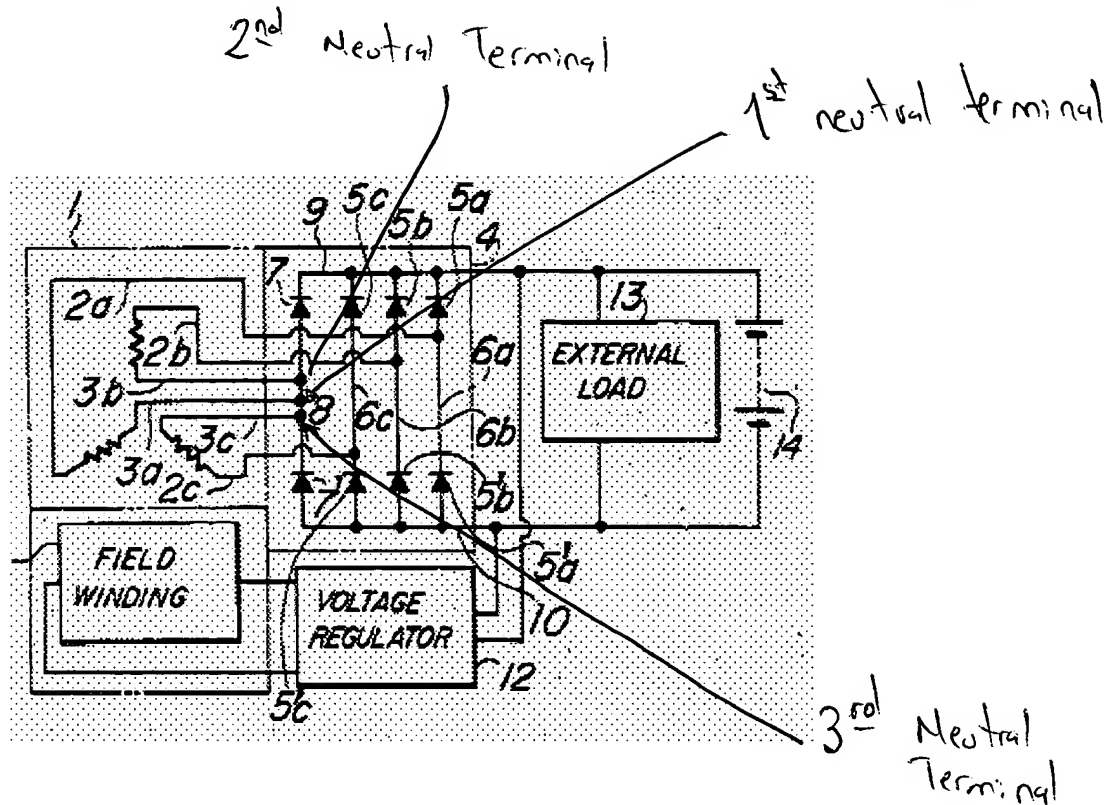 2nd Neutral Terminal
1st neutral terminal
1
9
5c
5b
5a
4
7
2a
2b
13
EXTERNAL
LOAD
6a
3b
8
6c
6b
14
3a
3c
2c
7
5'b
5'a
FIELD
WINDING
VOLTAGE
REGULATOR
10
12
5'c
3rd Neutral
Terminal